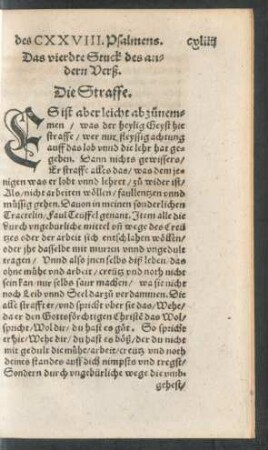 des CXXVIII. Psalmens. cxliiij
Das vierdte Stuck des an-
dern Verß.
Die Straffe.
ES ist aber leicht abzůnem-
men / was der heylig Geyst hie
straffe / wer nur fleyssig achtung
auff das lob vnnd die lehr hat ge-
geben. Dann nichts gewissers /
Er straffe alles das / was dem je-
nigen was er lobt vnnd lehret / zů wider ist /
Als / nicht arbeiten wöllen / faullentzen vnnd
müssig gehen. Dauon in meinen sonderlichen
Tractetlin / Faul Teuffel genant. Item alle die
durch vngebürliche mittel vñ wege des Creü-
tzes oder der arbeit sich entschlahen wöllen /
oder jhe dasselbe mit murren vnnd vngedult
tragen / Vnnd also jnen selbs diß leben, das
on ohne mühe vnd arbeit / creütz vnd noth nicht
sein kan nur selbs saur machen / wa sie nicht
noch Leib vnnd Seel darzů verdammen. Die
alle straffet er / vnd spricht vber sie das / Wehe /
da er den Gottsförchtigen Christē das Wol /
spricht / Wol dir / du hast es gůt. So spricht
er hie / Wehe dir / du hast es böß / der du nicht
mit gedult die mühe / arbeit / creutz vnd noth
deines standes auff dich nimpsts vnd tregst /
Sondern durch vngebürliche wege die vmb-
gehest /